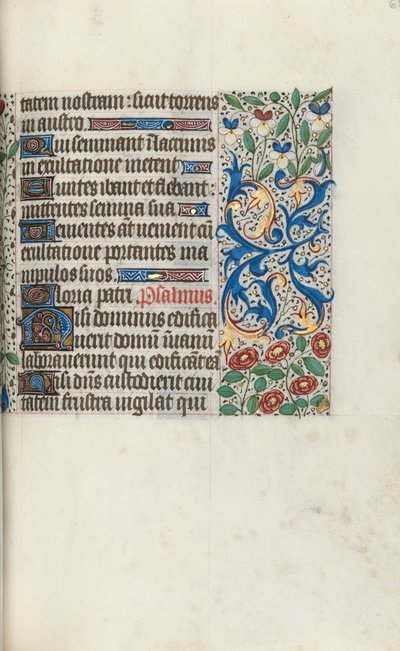 tatem nostram : sicut torrens
in austro
Qui seminant i lacrimis
in exultatione metent
Euntes ibant et flebant
mittentes semina sua
Venientes aut venient cū
exultatione portantes ma
nipulos suos
Gloria patri Psalmus
Nisi dominus edifica
uerit domū ī uanū
laborauerunt qui edificāt eā
Nisi dn̄s custodierit ciui
tatem frustra uigilat qui